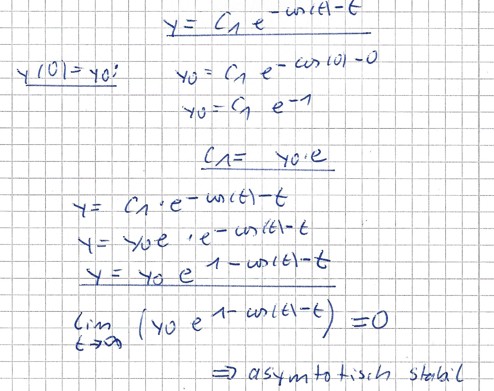 y = C1 e^{-cos(t)-t}
y(0) = y0: y0 = C1 e^{-cos(0)-0}
y0 = C1 e^{-1}
C1 = y0·e
y = C1·e^{-cos(t)-t}
y = y0e·e^{-cos(t)-t}
y = y0 e^{1-cos(t)-t}
lim t→∞ (y0 e^{1-cos(t)-t}) = 0
⇒ asymtotisch stabil